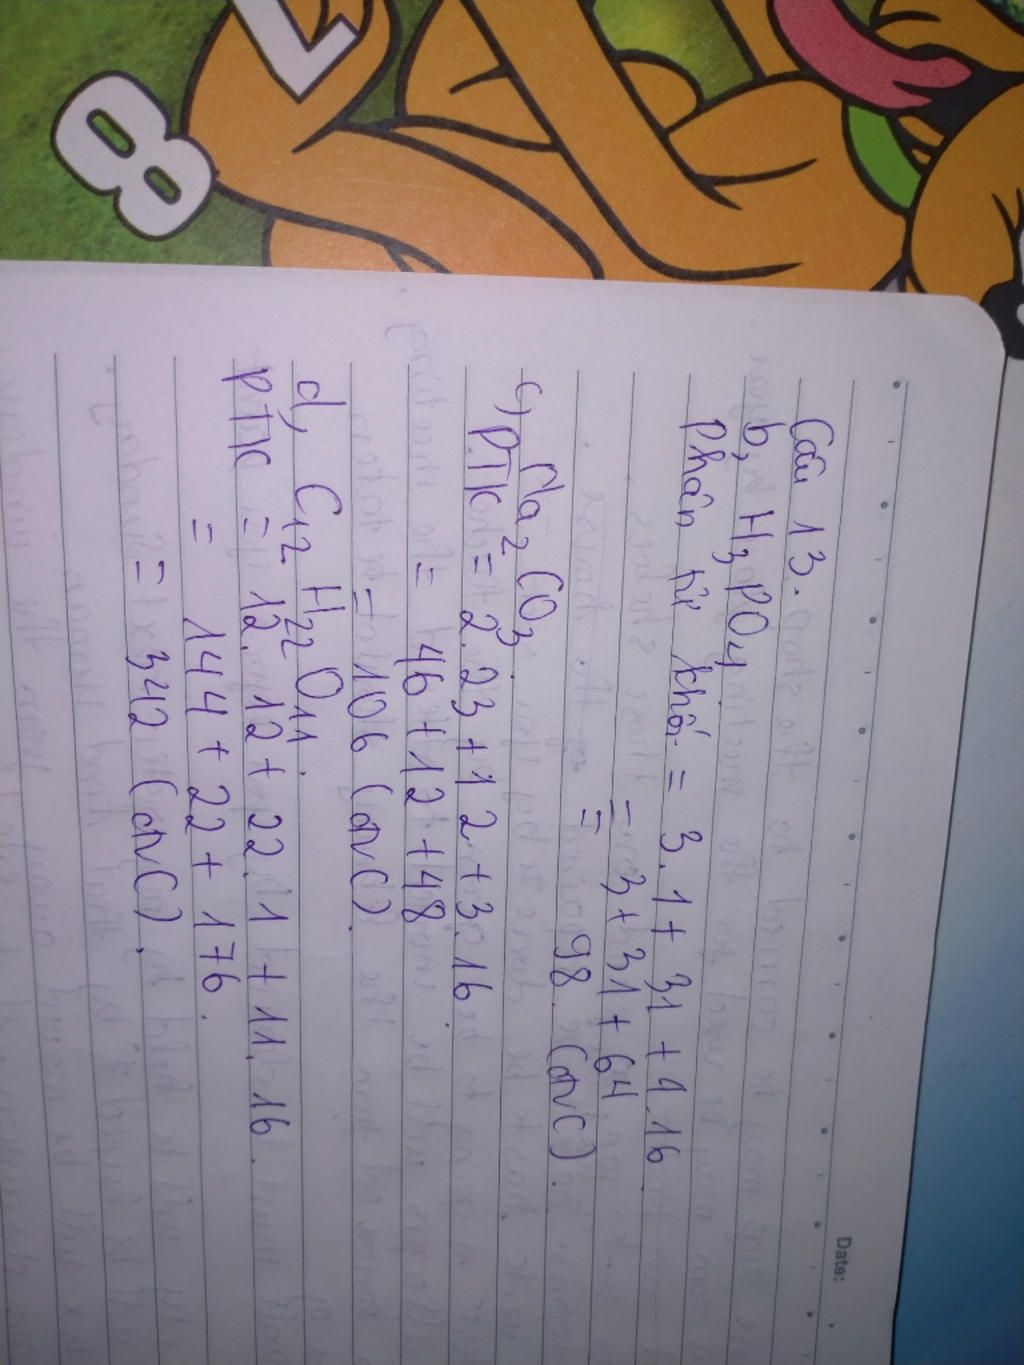 7
8
Date:
Câu 13.
b, H3PO4
Phân tử khối = 3.1 + 31 + 4.16
= 3 + 31 + 64
= 98 (đvC).
c, Na2CO3.
PTK = 2.23 + 12 + 3.16
= 46 + 12 + 48
= 106 (đvC).
d, C12H22O11.
PTK = 12.12 + 22.1 + 11.16.
= 144 + 22 + 176.
= 342 (đvC).